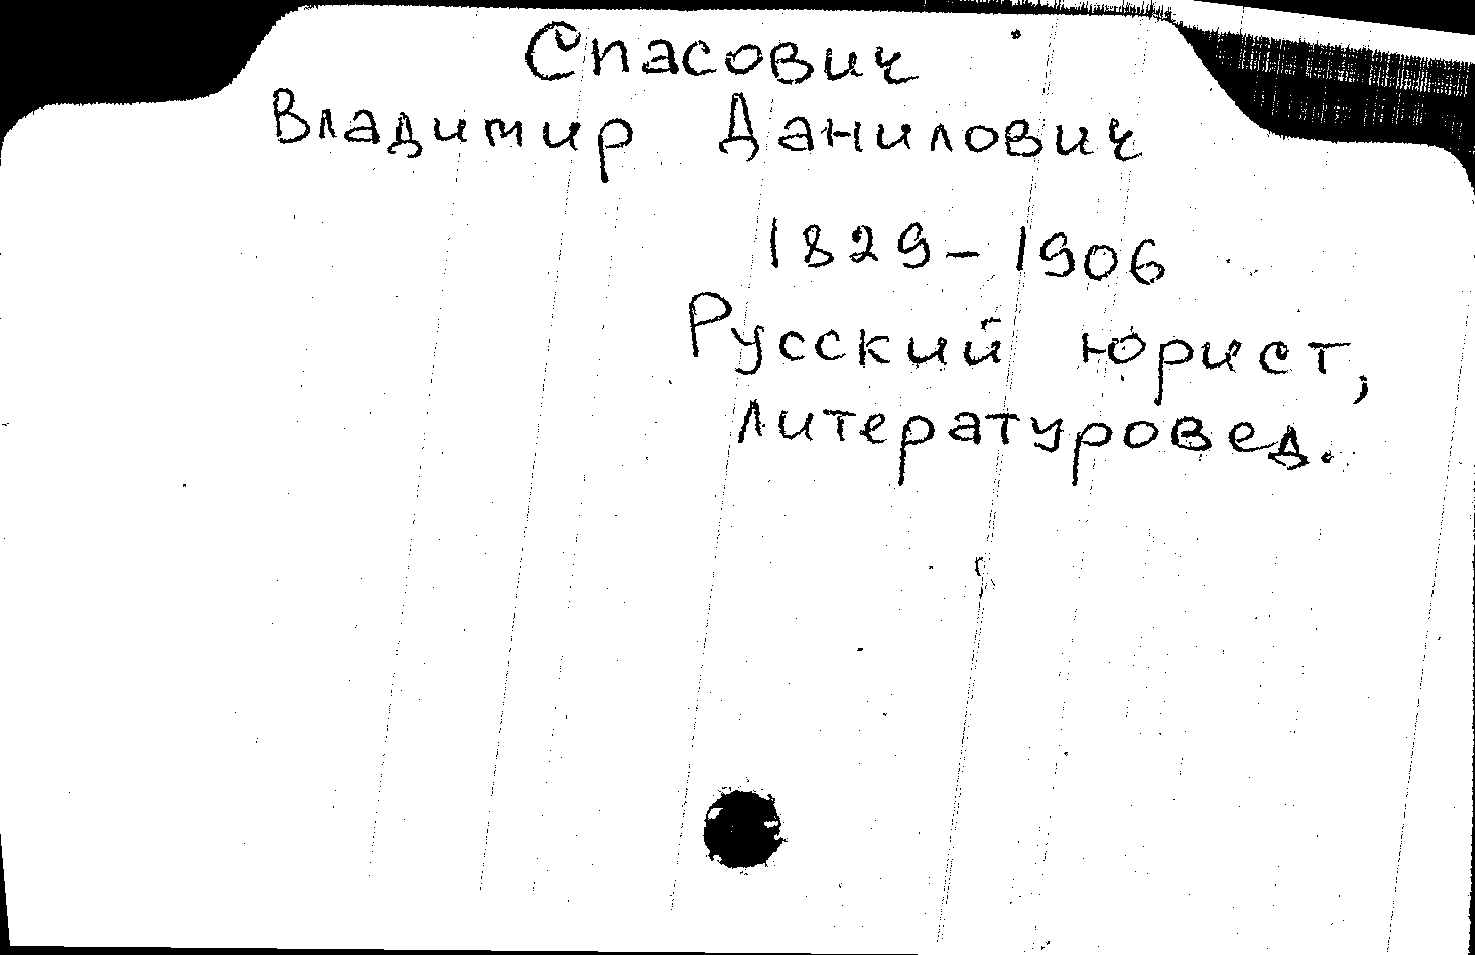 Спасович
Владимир Данилович
1829-1906
Русский юрист,
литературовед.